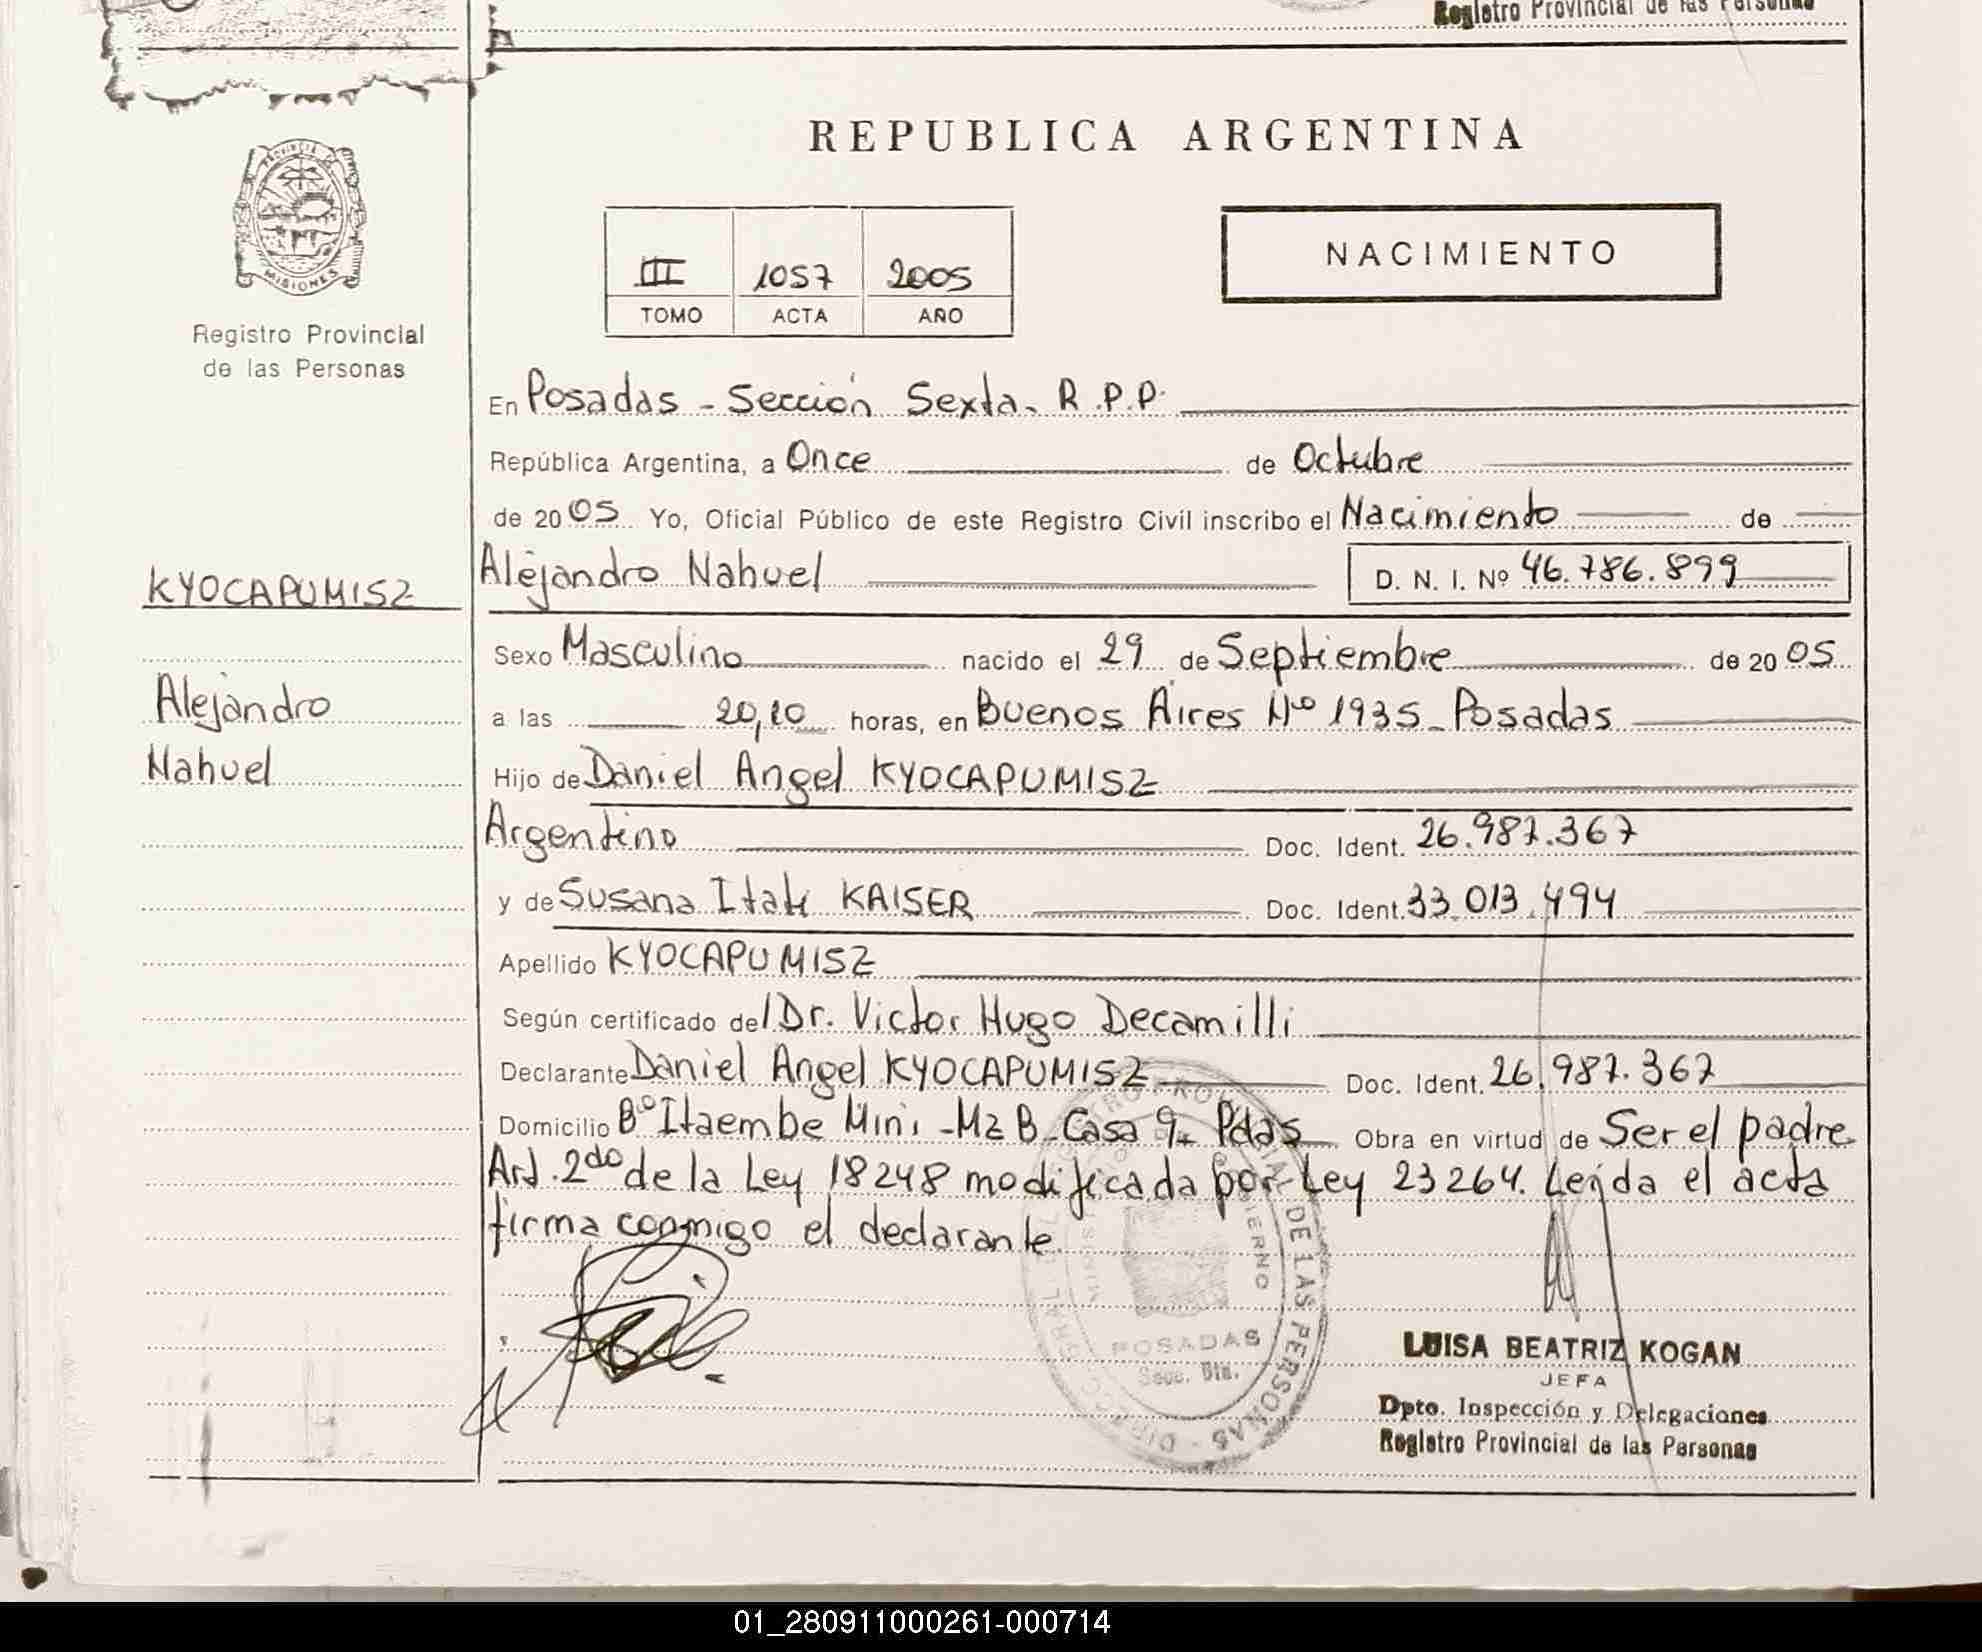 Registro Provincial de las Personas
REPUBLICA ARGENTINA
PROVINCIA DE
MISIONES
Registro Provincial
de las Personas
III 1057 2005
TOMO ACTA AÑO
NACIMIENTO
En Posadas - Sección Sexta - R.P.P.
República Argentina, a Once de Octubre
de 2005 Yo, Oficial Público de este Registro Civil inscribo el Nacimiento de
KYOCAPUMISZ
Alejandro Nahuel D. N. I. Nº 46.786.899
Sexo Masculino nacido el 29 de Septiembre de 2005
Alejandro
a las 20,10 horas, en Buenos Aires Nº 1935 - Posadas
Nahuel
Hijo de Daniel Angel KYOCAPUMISZ
Argentino Doc. Ident. 26.987.367
y de Susana Itati KAISER Doc. Ident. 33.013.494
Apellido KYOCAPUMISZ
Según certificado del Dr. Victor Hugo Decamilli
Declarante Daniel Angel KYOCAPUMISZ Doc. Ident. 26.987.367
Domicilio Bº Itaembe Mini - Mz B - Casa 9 - Pdas Obra en virtud de Ser el padre
Art. 2do de la Ley 18248 modificada por Ley 23264. Leída el acta
firma conmigo el declarante.
DE LAS PERSONAS
POSADAS
LUISA BEATRIZ KOGAN
JEFA
Dpto. Inspección y Delegaciones
Registro Provincial de las Personas
01_280911000261-000714